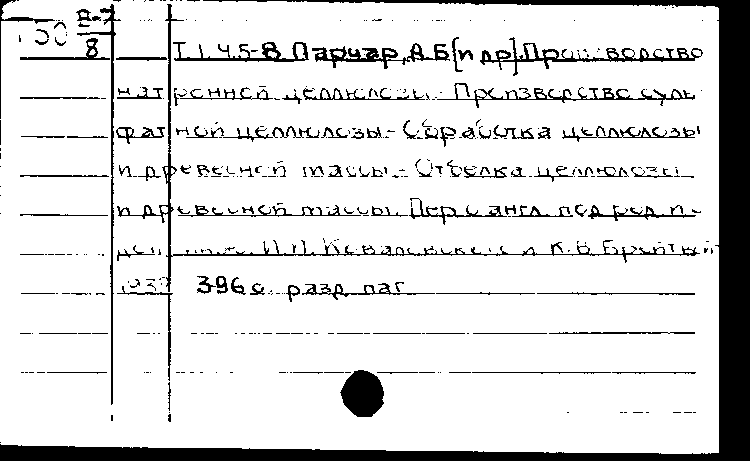 П-7
50 8
Т. 1. ч.5-8. Парчар, А.Б [и др]. Производство
натронной целлюлозы.- Производство суль
фатной целлюлозы.- Обработка целлюлозы
и древесной массы.- Отбелка целлюлозы
и древесной массы. Пер с англ. под ред. и
И.П. Ковалевского и К.В.
193 396 с. разд. паг